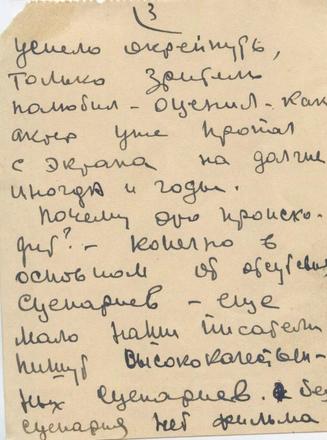 3
успело окрепнуть,
только зритель
полюбил - оценил - как
актер уже пропал
с экрана на долгие
иногда и годы.
Почему это происхо-
дит? - конечно в
основном от отсутствия
сценариев - еще
мало наши писатели
пишут высококачествен-
ных сценариев. Без
сценария нет фильма